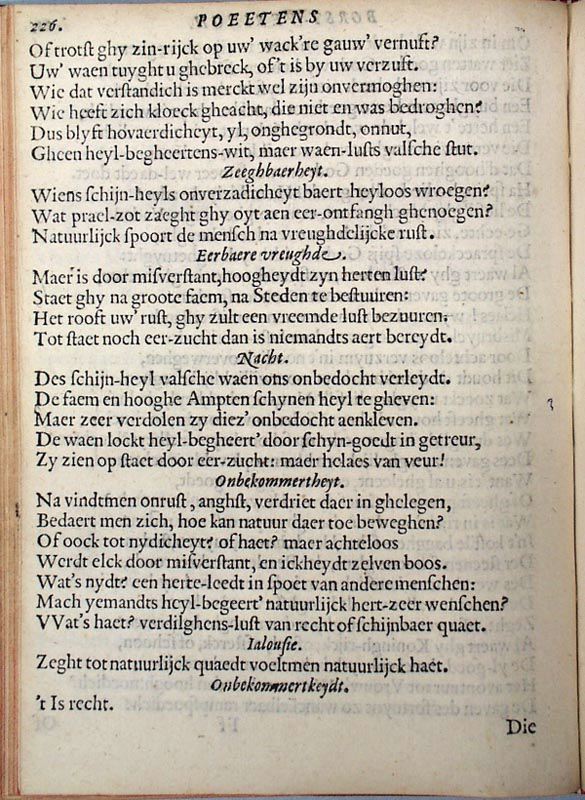 226. POEETENS
Of trotst ghy zin-rijck op uw' wack're gauw' vernuft?
Uw' waen tuyght u ghebreck, of't is by uw verzuft.
Wie dat verstandich is merckt wel zijn onvermoghen:
Wie heeft zich kloeck gheacht, die niet en was bedroghen?
Dus blyft hovaerdicheyt, yl, onghegrondt, onnut,
Gheen heyl-begheertens-wit, maer waen-lusts valsche stut.
Zeeghbaerheyt.
Wiens schijn-heyls onverzadicheyt baert heyloos wroegen?
Wat prael-zot zaeght ghy oyt aen eer-ontfangh ghenoegen?
Natuurlijck spoort de mensch na vreughdelijcke rust.
Eerbaere vreughde.
Maer is door misverstant, hoogheydt zyn herten lust?
Staet ghy na groote faem, na Steden te bestuiren:
Het rooft uw' rust, ghy zult een vreemde lust bezuuren.
Tot staet noch eer-zucht dan is niemandts aert bereydt.
Nacht.
Des schijn-heyl valsche waen ons onbedocht verleydt.
De faem en hooghe Ampten schynen heyl te gheven:
Maer zeer verdolen zy diez' onbedocht aenkleven.
De waen lockt heyl-begheert' door schyn-goedt in getreur,
Zy zien op staet door eer-zucht: maer helaes van veur!
Onbekommertheyt.
Na vindtmen onrust, anghst, verdriet daer in ghelegen,
Bedaert men zich, hoe kan natuur daer toe beweghen?
Of oock tot nydicheyt? of haet? maer achteloos
Werdt elck door misverstant, en ickheydt zelven boos.
Wat's nydt? een herte-leedt in spoet van andere menschen:
Mach yemandts heyl-begeert' natuurlijck hert-zeer wenschen?
VVat's haet? verdilghens-lust van recht of schijnbaer quaet.
Ialousie.
Zeght tot natuurlijck quaedt voeltmen natuurlijck haet.
Onbekommertheydt.
't Is recht.
Die